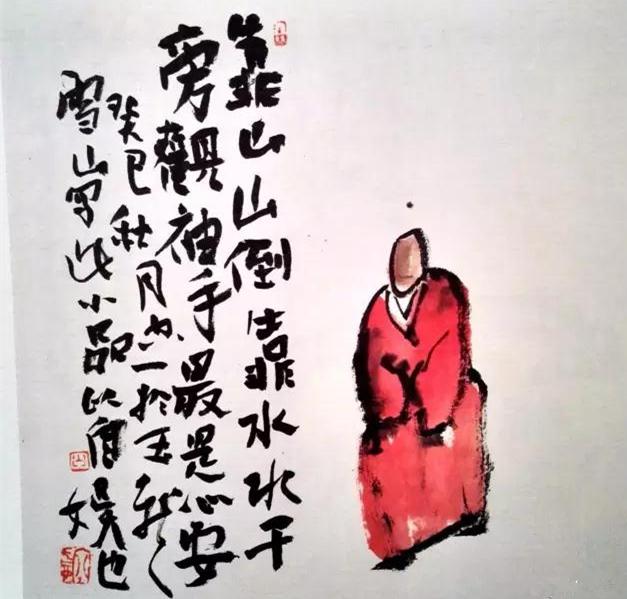 靠山山倒靠水水干
旁觀袖手最是心安
癸巳秋月一於玉龙
雪山写此小品以自娱也